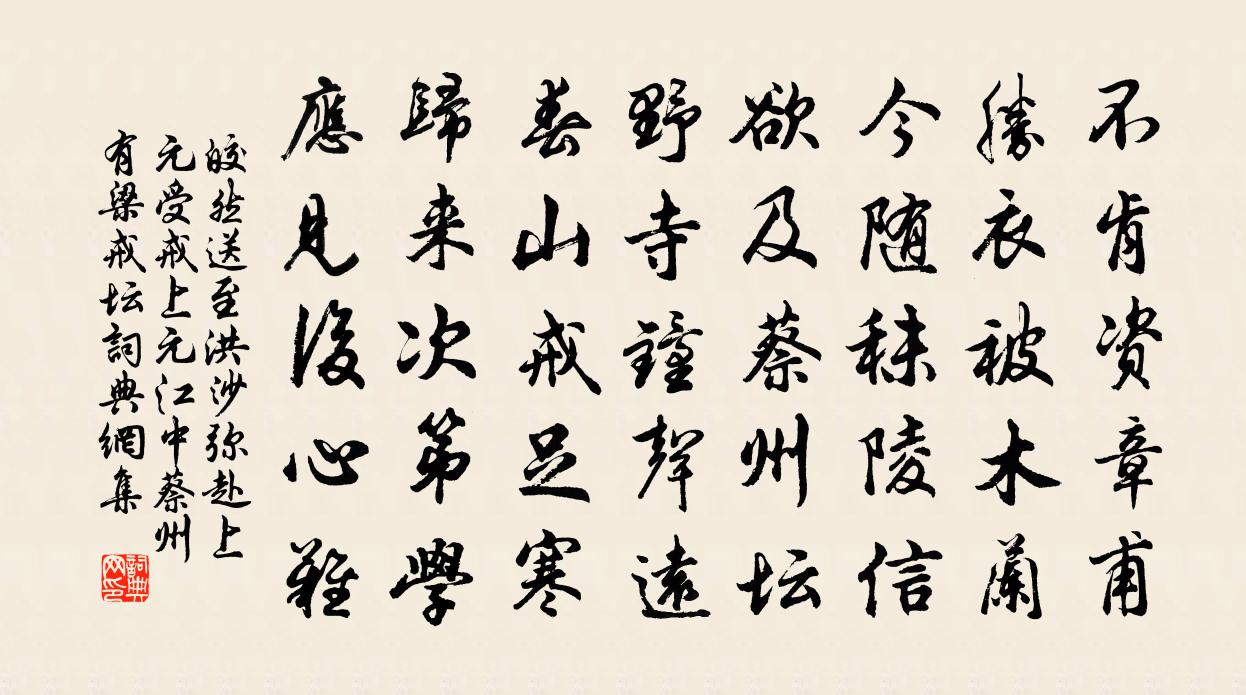 不肯资章甫
勝衣被木蘭
今随秣陵信
欲及蔡州坛
野寺鐘聲遠
春山戒足寒
歸来次第學
應見後心難
皎然送至洪沙弥赴上
元受戒上元江中蔡州
有梁戒坛詞典網集
詞典网印